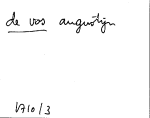 de vos augustijn
VA10/3